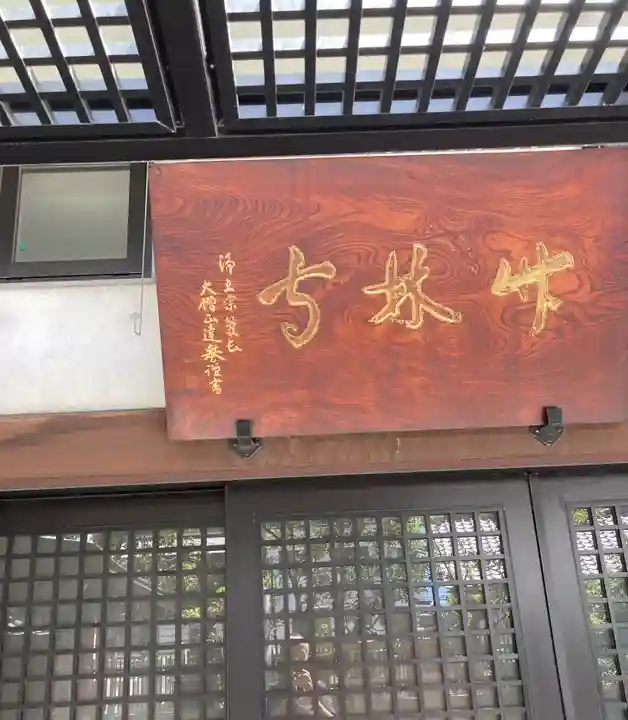 竹林寺
浄土宗管長
大僧正達書